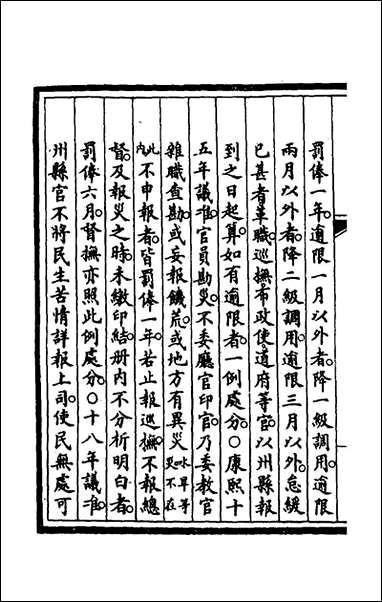 罰俸一年。逾限一月以外者。降一級調用。逾限
兩月以外者。降二級調用。逾限三月以外。怠緩
已甚者革職。巡撫布政使道府等官。以州縣報
到之日起算。如有逾限者。一例處分。○康熙十
五年議准。官員勘災。不委廳官印官。乃委教官
雜職查勘。或妄報饑荒。或地方有異災水旱等災不在
此內不申報者。皆罰俸一年。若止報巡撫。不報總
督。及報災之時。未繳印結。册內不分析明白者。
罰俸六月。督撫亦照此例處分。○十八年議准。
州縣官不將民生苦情詳報上司。使民無處可